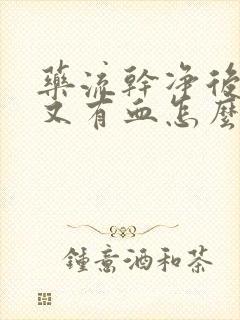 藥流幹凈後
又有血怎麽
鍾意酒和茶